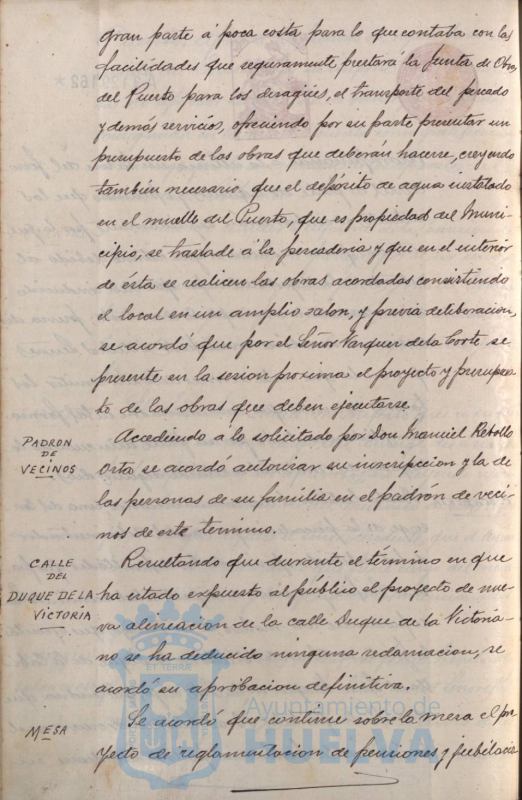 gran parte á poca costa para lo que contaba con las
facilidades que seguramente prestará la Junta de Obras
del Puerto para los desagües, el transporte del pescado
y demás servicios, ofreciendo por su parte presentar un
presupuesto de las obras que deberán hacerse, creyendo
también necesario que el depósito de agua instalado
en el muelle del Puerto, que es propiedad del Muni-
cipio, se traslade á la pescaderia y que en el interior
de ésta se realicen las obras acordadas consistiendo
el local en un amplio salon, y previa deliberacion,
se acordó que por el Señor Vazquez de la Corte se
presente en la sesion proxima el proyecto y presupues-
to de las obras que deben ejecutarse.
PADRON
DE
VECINOS
Accediendo á lo solicitado por Don Manuel Rebollo
Orta se acordó autorizar su inscripcion y la de
las personas de su familia en el padrón de veci-
nos de este termino.
CALLE
DEL
DUQUE DE LA
VICTORIA
Resultando que durante el término en que
ha estado expuesto al público el proyecto de nue-
va alineacion de la calle Duque de la Victoria
no se ha deducido ninguna reclamacion, se
acordó su aprobacion definitiva.
MESA
Se acordó que continue sobre la mesa el pro-
yecto de reglamentacion de pensiones y jubilacio
Ayuntamiento de
HUELVA